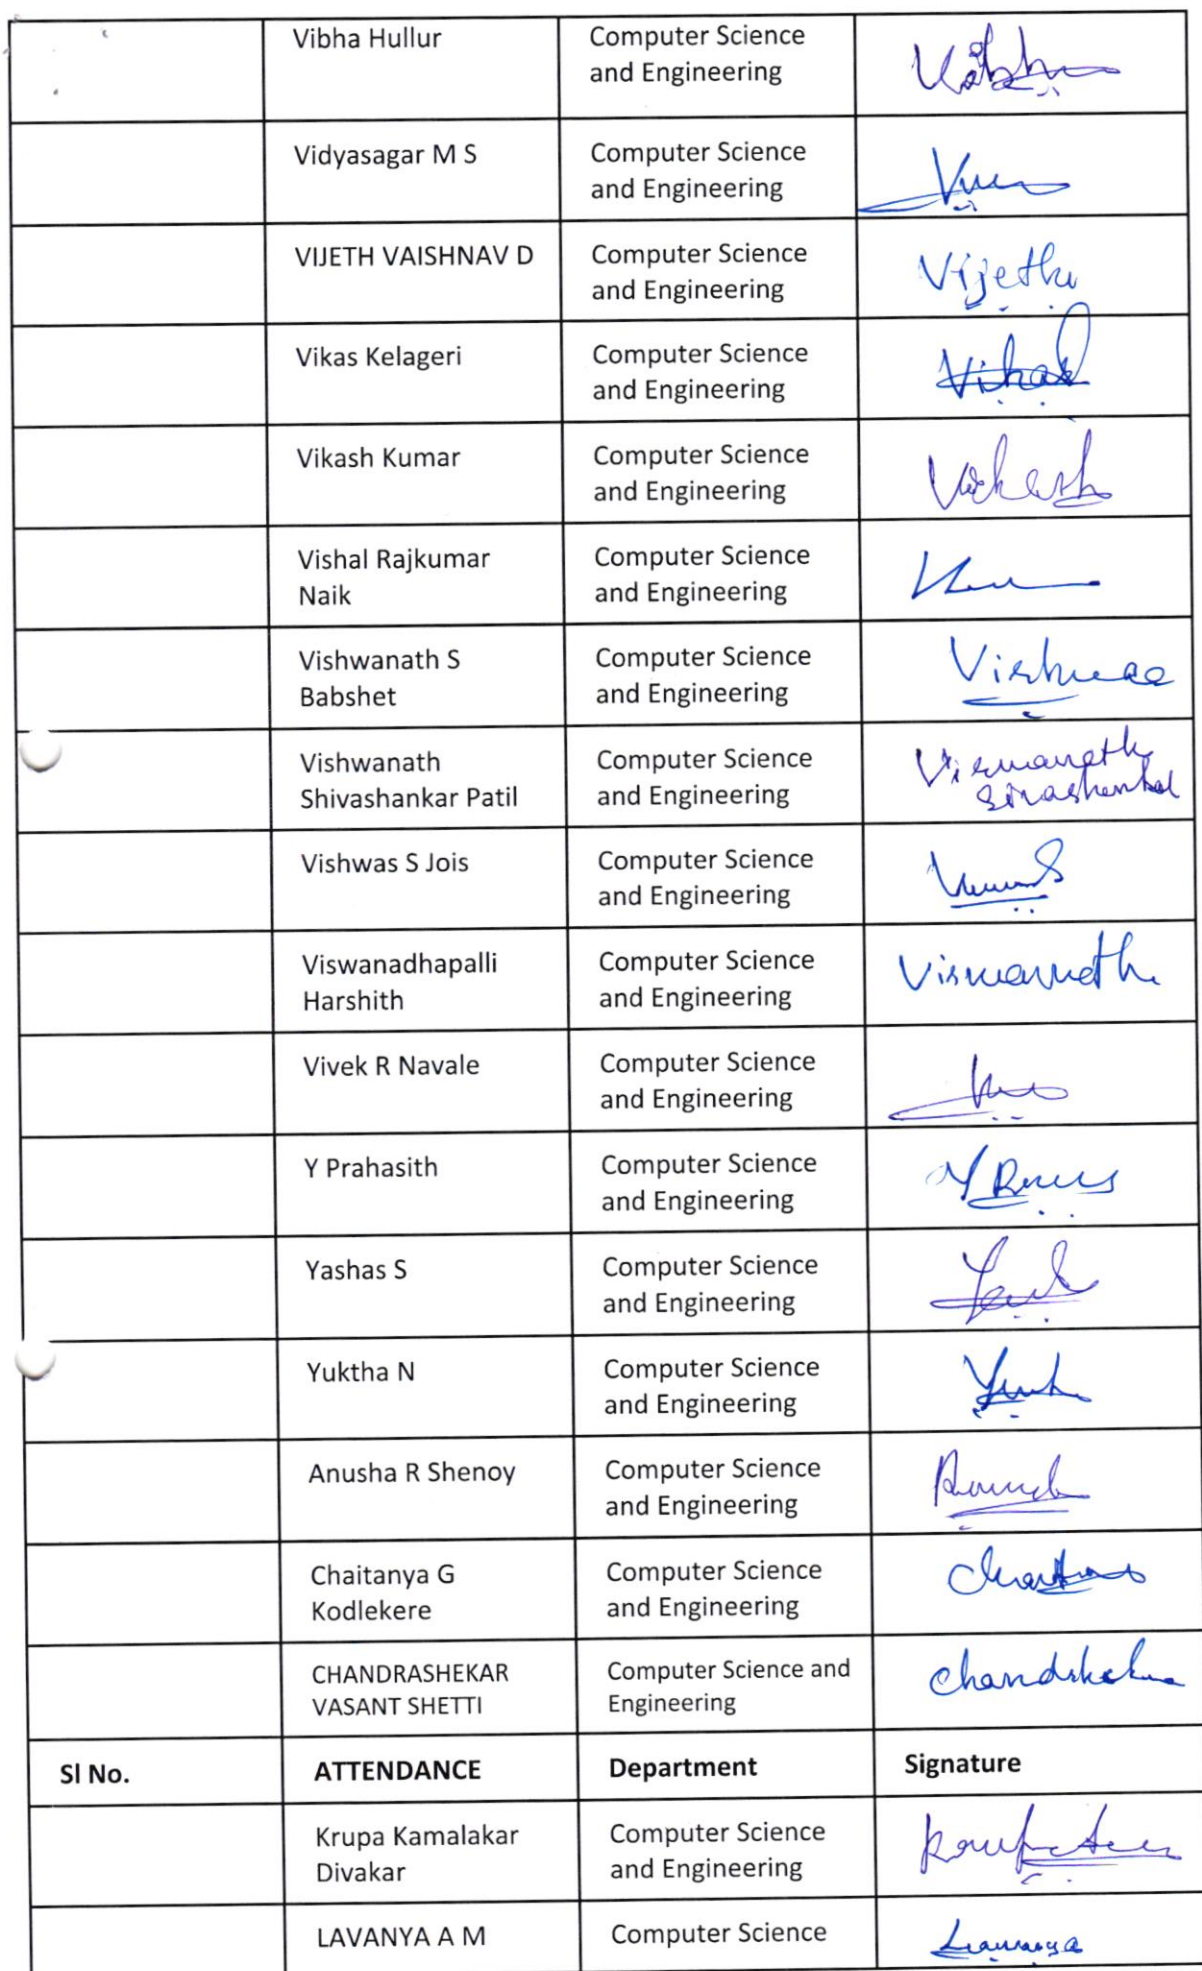 Vibha Hullur
Computer Science
and Engineering
Vidyasagar M S
Computer Science
and Engineering
VIJETH VAISHNAV D
Computer Science
and Engineering
Vijeth
Vikas Kelageri
Computer Science
and Engineering
Vikas
Vikash Kumar
Computer Science
and Engineering
Vikash
Vishal Rajkumar
Naik
Computer Science
and Engineering
Vishwanath S
Babshet
Computer Science
and Engineering
Vishwanath
Shivashankar Patil
Computer Science
and Engineering
Vishwas S Jois
Computer Science
and Engineering
Viswanadhapalli
Harshith
Computer Science
and Engineering
Vivek R Navale
Computer Science
and Engineering
Y Prahasith
Computer Science
and Engineering
Yashas S
Computer Science
and Engineering
Yuktha N
Computer Science
and Engineering
Anusha R Shenoy
Computer Science
and Engineering
Chaitanya G
Kodlekere
Computer Science
and Engineering
CHANDRASHEKAR
VASANT SHETTI
Computer Science and
Engineering
Sl No.
ATTENDANCE
Department
Signature
Krupa Kamalakar
Divakar
Computer Science
and Engineering
LAVANYA A M
Computer Science